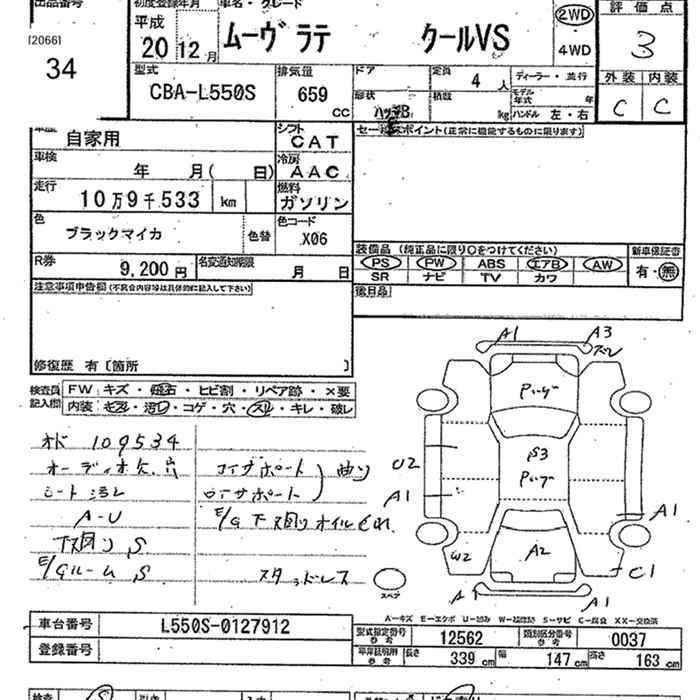 出品番号 初度登録年月 車名・グレード 評価点
[2066] 平成 ムーヴ ラテ クールVS 2WD 3
34 20 12月 4WD
型式 排気量 ドア 定員 4人 ディーラー・並行 外装 内装
CBA-L550S 659 CC 形状 ハッチB 積載 kg モデル年式 年 ハンドル 左・右 C C
車歴 自家用 シフト CAT セールスポイント(正常に機能するものに限ります)
車検 年 月( 日) 冷房 AAC
走行 10万9千533 km 燃料 ガソリン
色 ブラックマイカ 色替 色コード X06
装備品 (純正品に限り○をつけてください) 新車保証書
PS PW ABS エアB AW 有・無
SR ナビ TV カワ
R券 9,200円 名変通知期限 月 日
注意事項申告欄(不具合内容等は具体的に記入して下さい)
後日品
修復歴 有〔箇所 〕
検査員記入欄 FW キズ・飛石・ヒビ割・リペア跡・×要
内装 キズ・汚レ・コゲ・穴・スレ・キレ・破レ
オド 109534
オーディオ欠.穴 コアサポート
シート汚レ ロアサポート 曲り
A-U E/G下廻りオイルもれ
下廻り S
E/Gルーム S スタッドレス
A1 A3 ズレ
U2 S3
A1 A1
W2 A2 C1
A1 A1
スペア
A-キズ E-エクボ U-凹み W-補修跡 S-サビ C-腐食 XX-交換済
車台番号 L550S-0127912 型式指定番号 参考 12562 類別区分番号 参考 0037
登録番号 参考 長さ 339cm 幅 147cm 高さ 163cm
検査